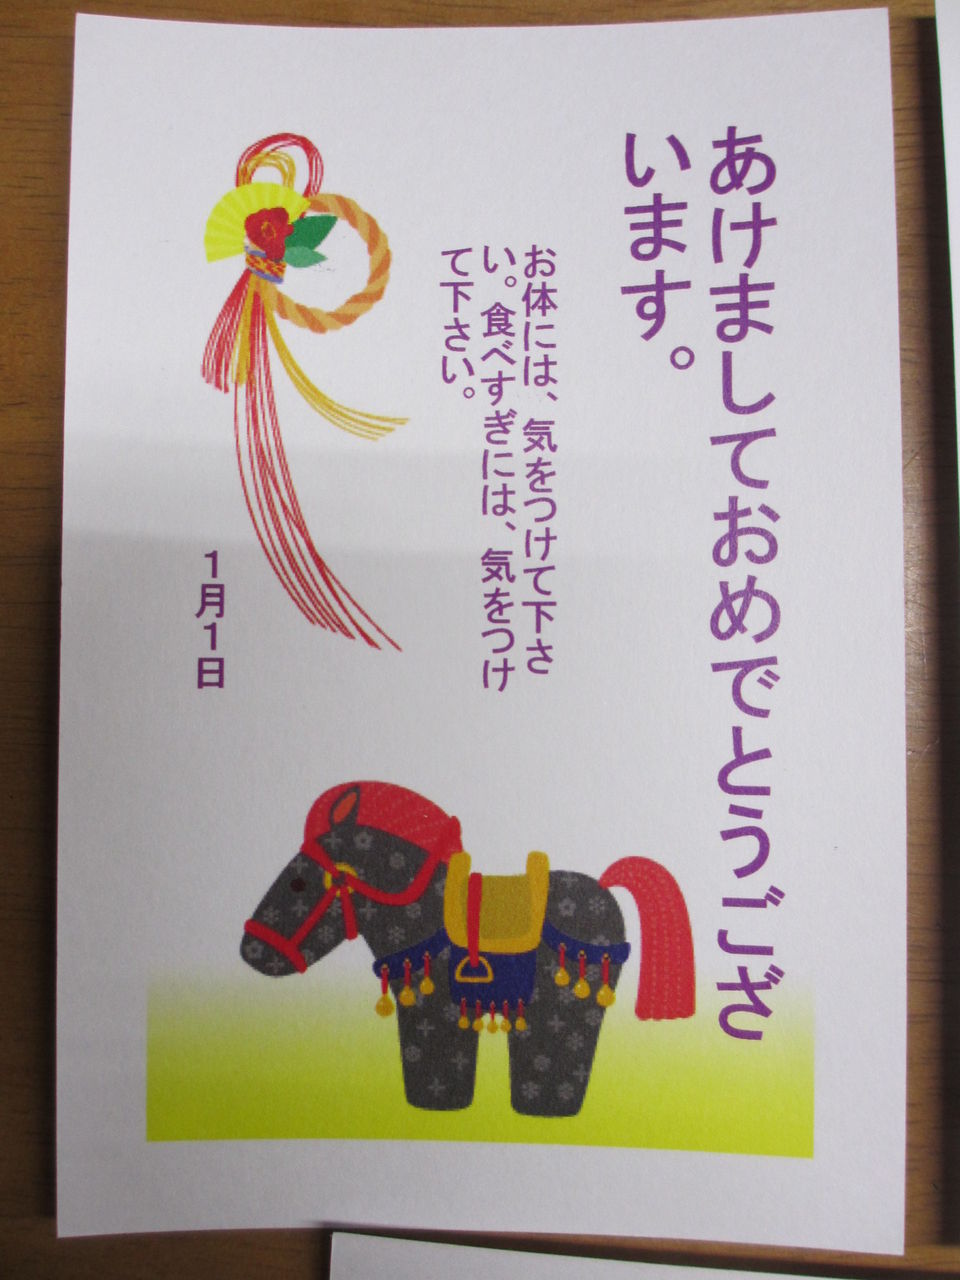 あけましておめでとうござ
います。
お体には、気をつけて下さ
い。食べすぎには、気をつけ
て下さい。
１月１日